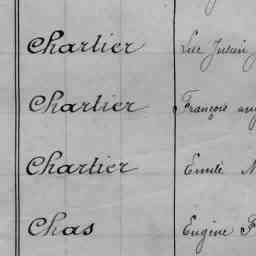 Charlier Luc Julien
Charlier François
Charlier Emile
Chas Eugène